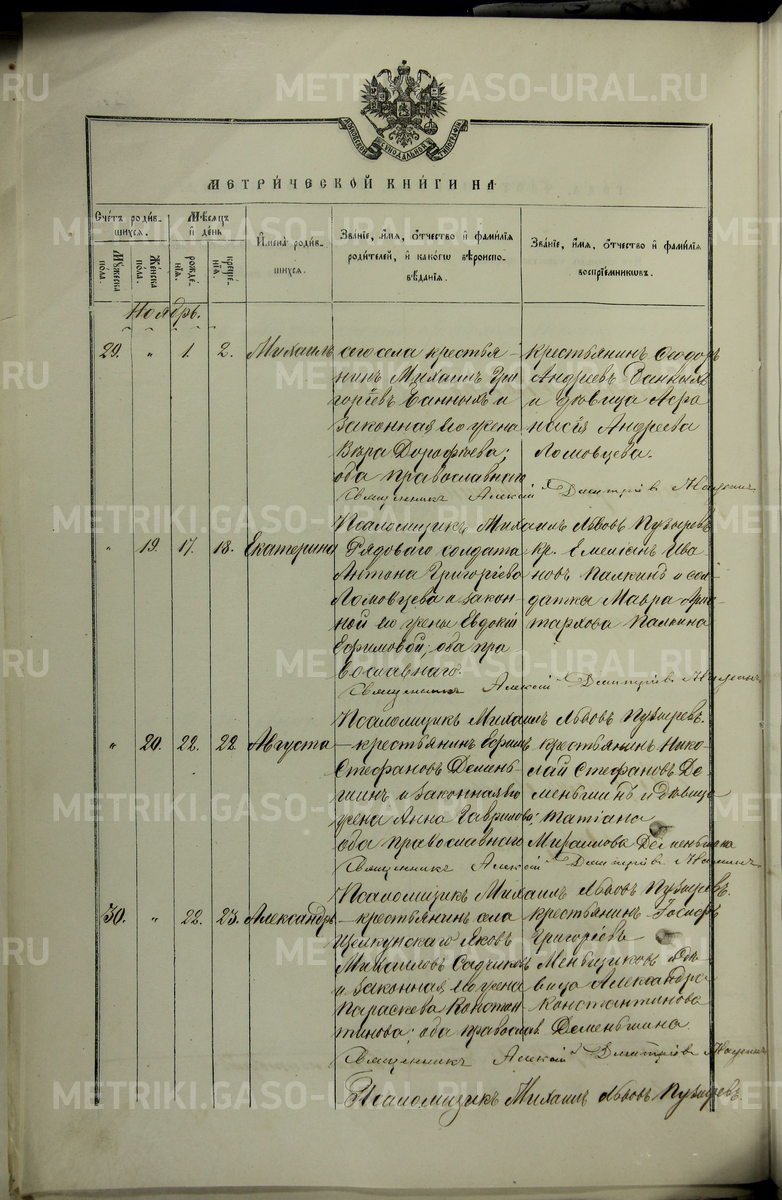 МЕТРИ́ЧЕСКОЙ КНИ́ГИ НА
Счетъ роди́вшихся.
Мужеска пола.
Женска пола.
Мѣсяцъ и день
рожденія.
крещенія.
Имена роди́вшихся.
Званіе, имя, отчество и фамилія родителей, и какого вѣроисповѣданія.
Званіе, имя, отчество и фамилія воспріемниковъ.
Ноябрь.
29. " 1. 2. Михаилъ
сего села крестья-
нинъ Михаилъ Гри
горіевъ Банныхъ и
законная его жена
Вѣра Дорофѣева;
оба православнаго
Крестьянинъ Ѳеодоръ
Андреевъ Банныхъ
и дѣвица Аѳа
насія Андреева
Ломовцева.
Священникъ Алексій Дмитріев
Псаломщикъ Михаилъ Львовъ Пузыревъ
" 19. 17. 18. Екатерина
Рядоваго солдата
Антона Григоріева
Ломовцева и закон-
ной его жены Евдокіи
Ефимовой; оба пра
вославнаго.
кр. Емеліанъ Ива
новъ Палкинъ и сол-
датка Мавра Арис-
тархова Палкина
Священникъ Алексій Дмитріев
Псаломщикъ Михаилъ Львовъ Пузыревъ.
" 20. 22. 22. Августа
крестьянинъ Ефимъ
Стефановъ Демень-
шинъ и законная его
жена Анна Гаврилова;
оба православнаго
крестьянинъ Нико-
лай Стефановъ Де-
меньшинъ и дѣвица
Татіана
Деменьшина
Священникъ Алексій Дмитріев
Псаломщикъ Михаилъ Львовъ Пузыревъ.
30. " 22. 23. Александръ
крестьянинъ села
Щелкунскаго Яковъ
Михаиловъ
и законная его жена
Параскева Констан
тинова; оба православ.
крестьянинъ
Григоріевъ
Меньщиковъ и дѣ-
вица Александра
Константинова
Деменьшина.
Священникъ Алексій Дмитріев
Псаломщикъ Михаилъ Львовъ Пузыревъ
METRIKI.GASO-URAL.RU